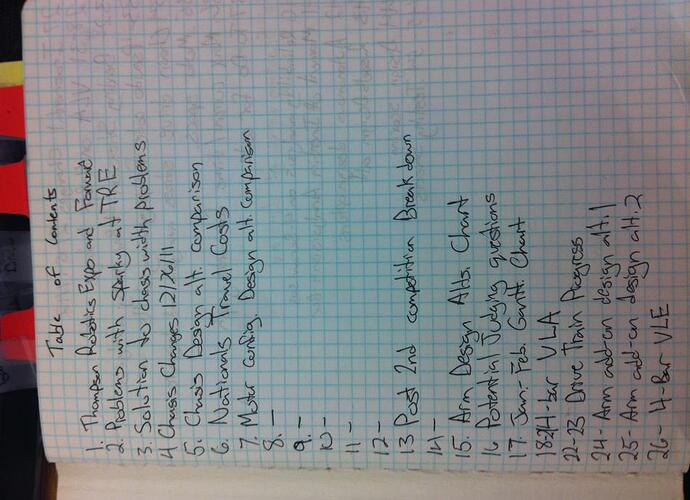 Table of Contents
1. Thompson Robotics Expo and Forward
2. Problems with Sparky at TRE
3. Solution to chassis with problems
4 Chassis Changes 12/26/11
5. Chassis Design alt. comparison
6. Nationals Travel Costs
7. Motor Config. Design alt. Comparison
8. —
9. —
10 —
11 —
12 —
13 Post 2nd competition Breakdown
14 —
15. Arm Design Alts. Chart
16 Potential Judging questions
17. Jan-Feb. Gantt Chart
4-bar VLA
22-23 Drive Train Progress
24- Arm add-on design alt. 1
25- Arm add-on design alt. 2
26- 4-Bar VLE